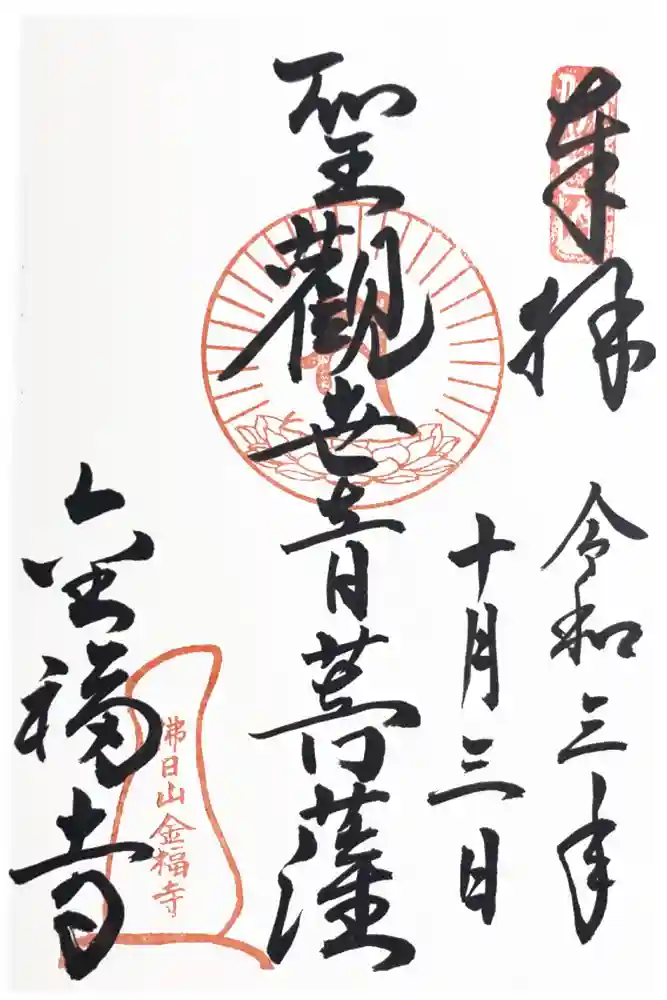 奉拝
令和三年
十月三日
聖觀世音菩薩
金福寺
佛日山金福寺